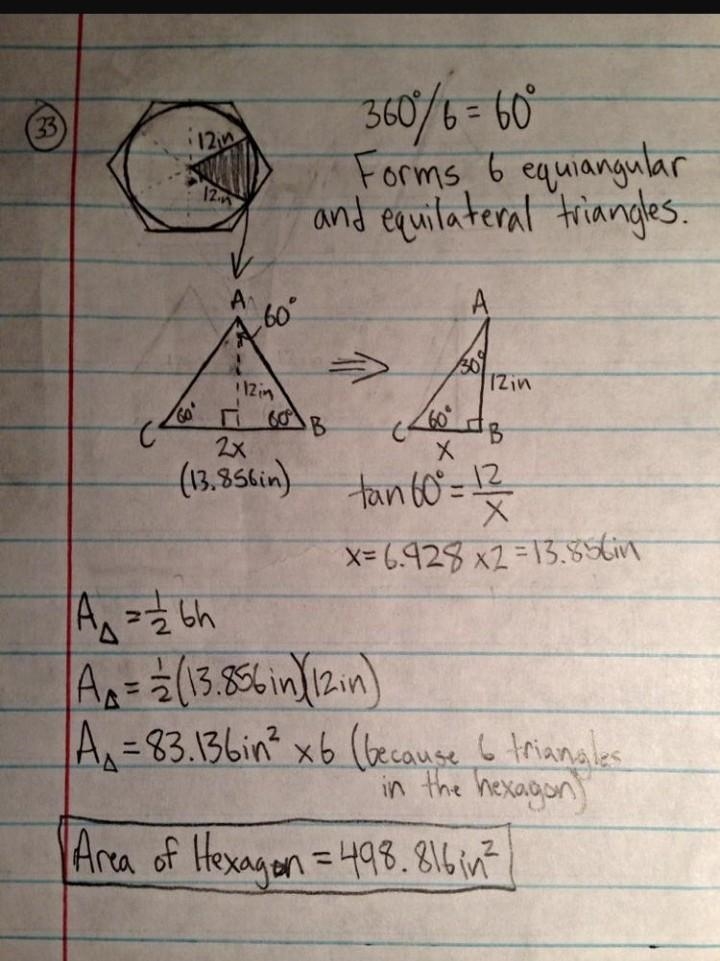 33
12in
12in
360°/6 = 60°
Forms 6 equiangular
and equilateral triangles.
A
60°
12in
60°
60°
C
B
2x
(13.856in)
⇒
A
30°
12in
60°
C
B
x
tan60° = 12/x
x = 6.928 x2 = 13.856in
A△ = 1/2 bh
A△ = 1/2(13.856in)(12in)
A△ = 83.136in² x6 (because 6 triangles
in the hexagon)
Area of Hexagon = 498.816in²